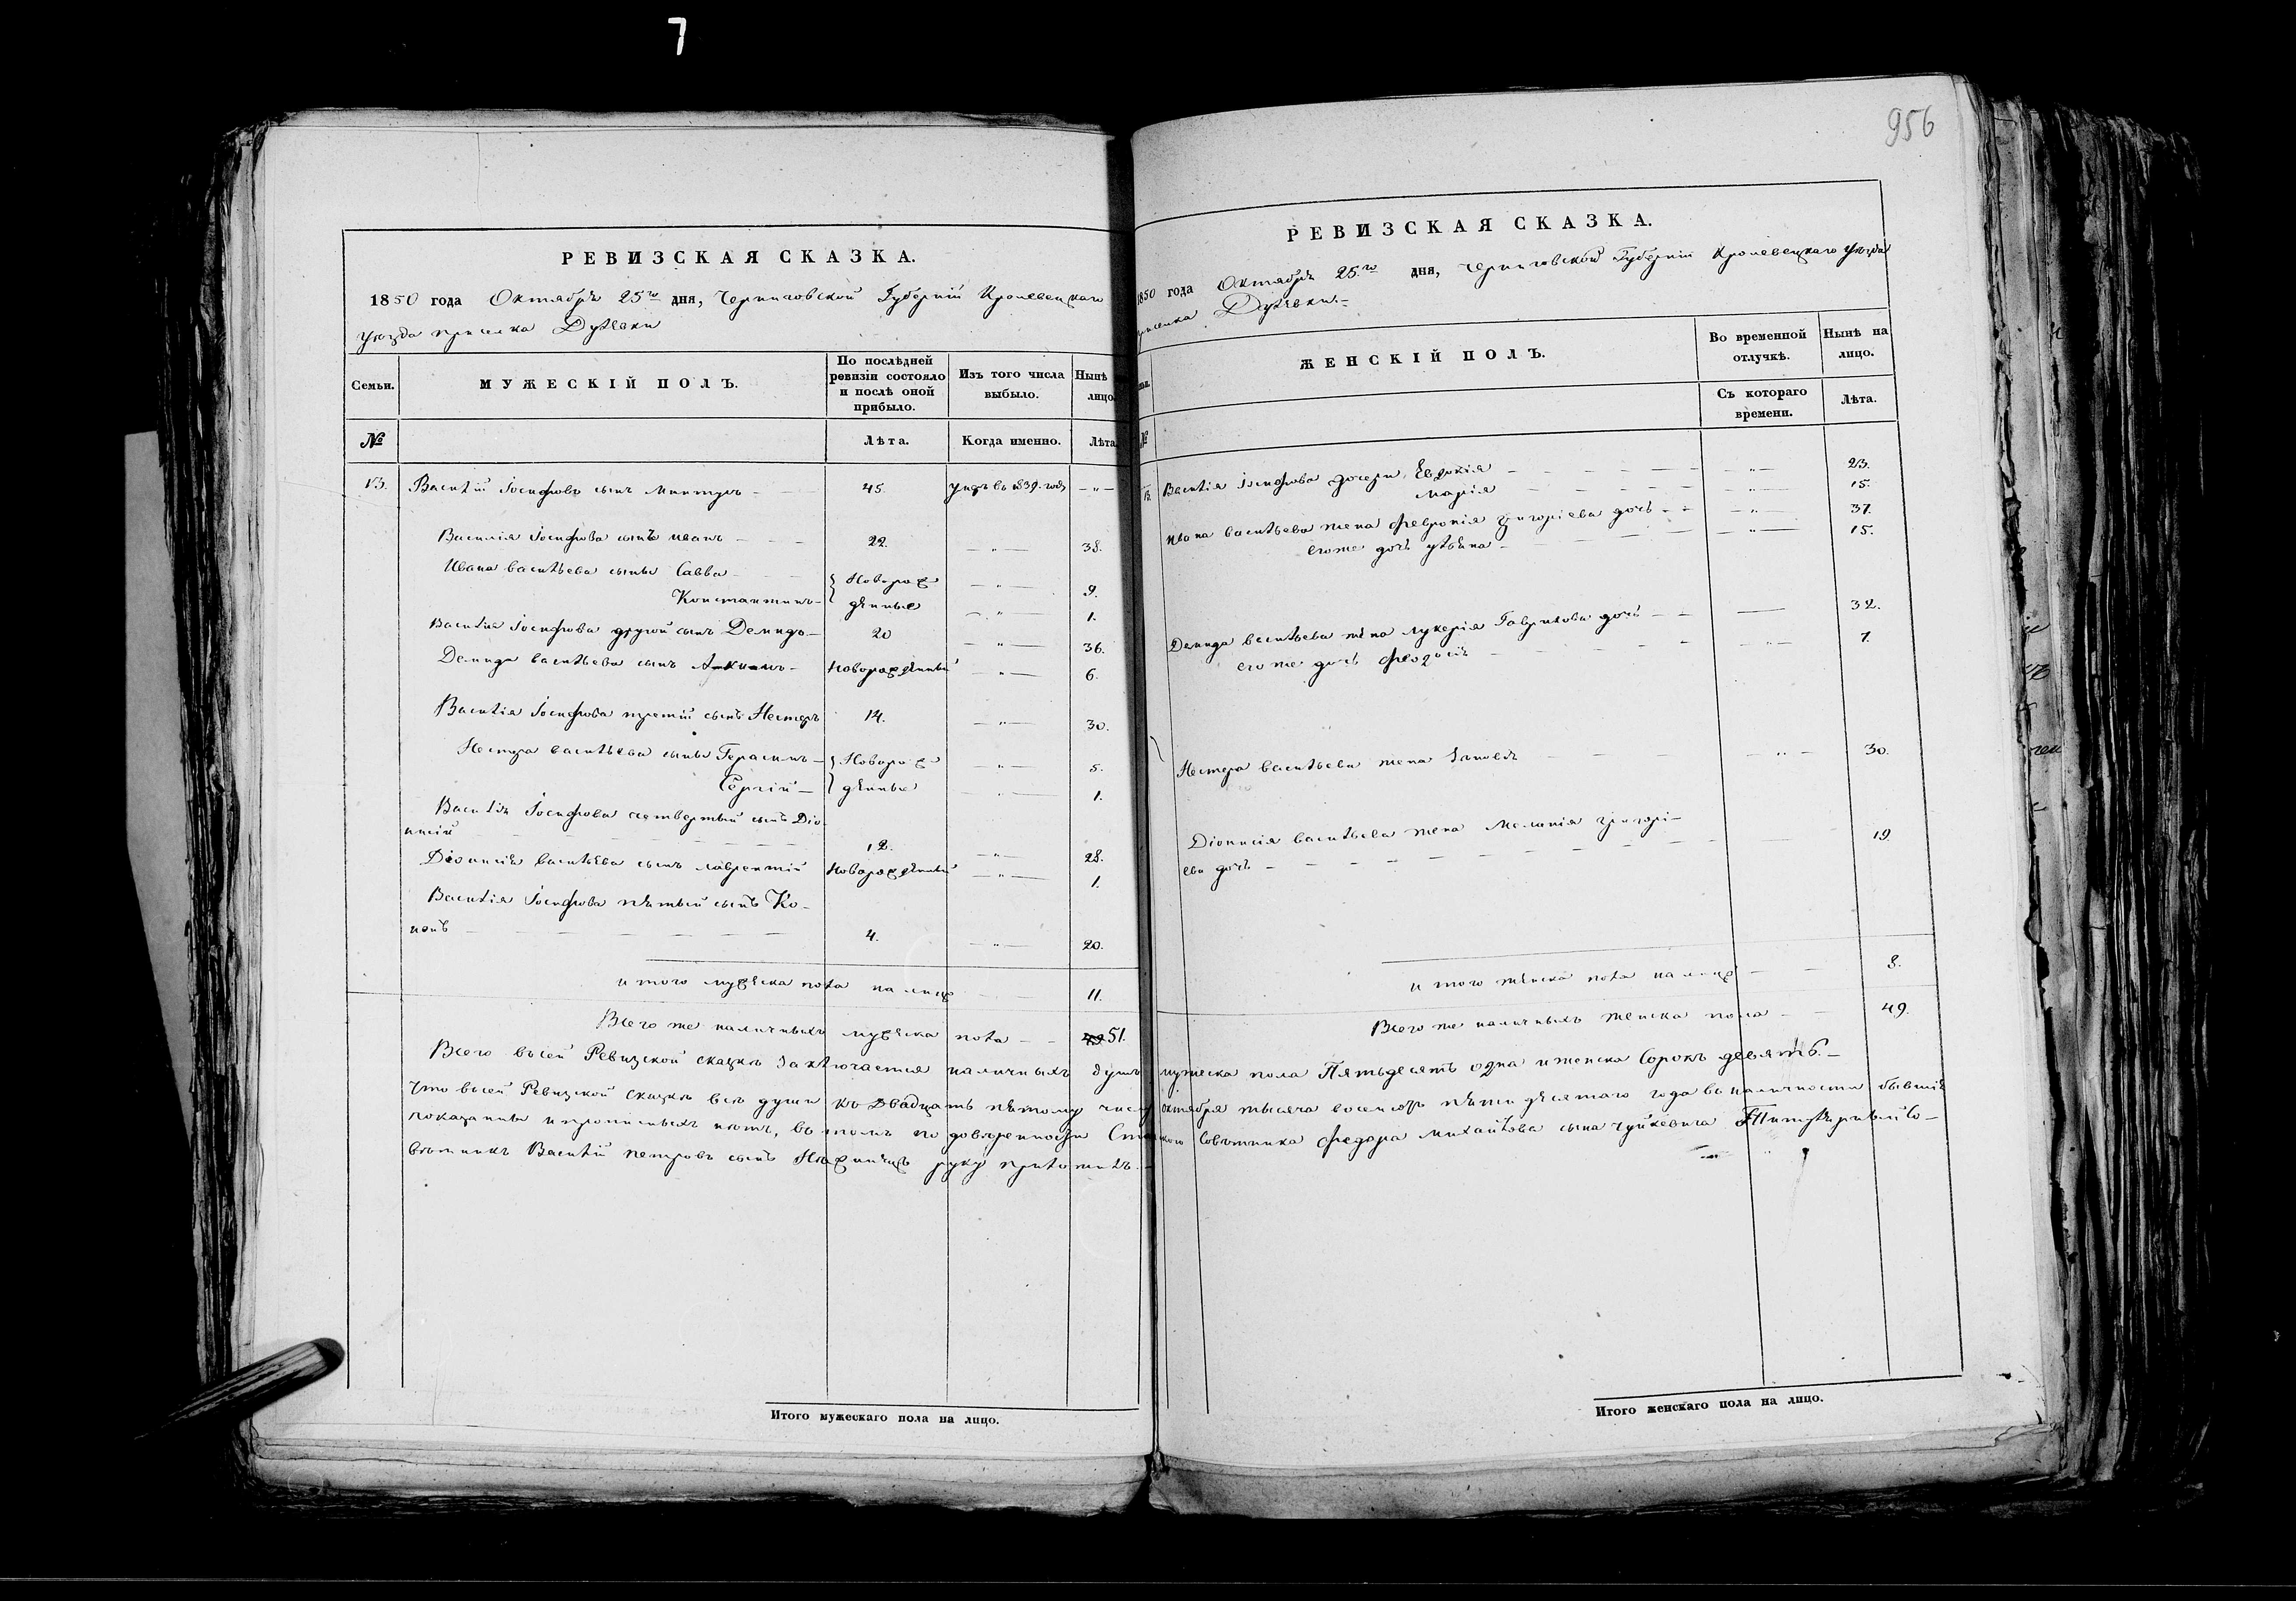 7
956
РЕВИЗСКАЯ СКАЗКА.
1850 года Октября 25го дня, Черниговской Губерніи Кролевецкаго
уѣзда приселка
Семьи.
МУЖЕСКІЙ ПОЛЪ.
По послѣдней ревизіи состояло и послѣ оной прибыло.
Изъ того числа выбыло.
Нынѣ лицо
№
Лѣта.
Когда именно.
Лѣта
13. Василій Іосифовъ сынъ 45. въ 1839. году — " —
Василія Іосифова сынъ Иванъ — 22. — " — 38.
Ивана Васильева сыны Савва — Новорож — " — 9.
Константинъ — денные — " — 1.
Василія Іосифова другой сынъ Демидъ — 20 — " — 36.
Демида Васильева сынъ — Новорожденный — " — 6.
Василія Іосифова третій сынъ Нестеръ 14. — " — 30.
Нестера Васильева сыны Герасимъ — Новорож — " — 5.
Сергій — денные — " — 1.
Василія Іосифова четвертый сынъ Діо-
нисій — 12. — " — 28.
Діонисія Васильева сынъ Лаврентій Новорожденный — " — 1.
Василія Іосифова пятый сынъ Ко-
нонъ — 4. — " — 20.
итого мужеска пола на лицо — 11.
Всего же наличныхъ мужеска пола — 49 51.
Итого мужескаго пола на лицо.
РЕВИЗСКАЯ СКАЗКА.
1850 года Октября 25.го дня, Черниговской Губерніи Кролевецкаго уѣзда
приселка
ЖЕНСКІЙ ПОЛЪ.
Во временной отлучкѣ.
Нынѣ на лицо.
№
Съ котораго времени.
Лѣта.
13. Василія Іосифова дочери, Евдокія — " — 23.
Марія — " — 15.
Ивана Васильева жена Февронія Григоріева дочь — " — 37.
его же дочь Ульяна — " — 15.
Демида Васильева жена Лукерія Гаврилова дочь — 32.
его же дочь Феодосія — " — 7.
Нестера Васильева жена — " — 30.
Діонисія Васильева жена Меланія Григорі-
ева дочь — 19.
итого женска пола на лицо — 8.
Всего же наличныхъ женска пола — 49.
Всего въ сей Ревизской сказкѣ заключается наличныхъ душъ мужеска пола Пятьдесятъ одна и женска Сорокъ девять. —
Что въ сей Ревизской сказкѣ всѣ души къ двадцать пятому числу октября тысяча восемсотъ пятидесятаго года въ наличности бывшія
показаны и прописныхъ нѣтъ, въ томъ по довѣренности Совѣтника Федора Михайлова сына Чуйкевича Титулярный Со-
вѣтникъ Василій Петровъ сынъ руку приложилъ. —
Итого женскаго пола на лицо.